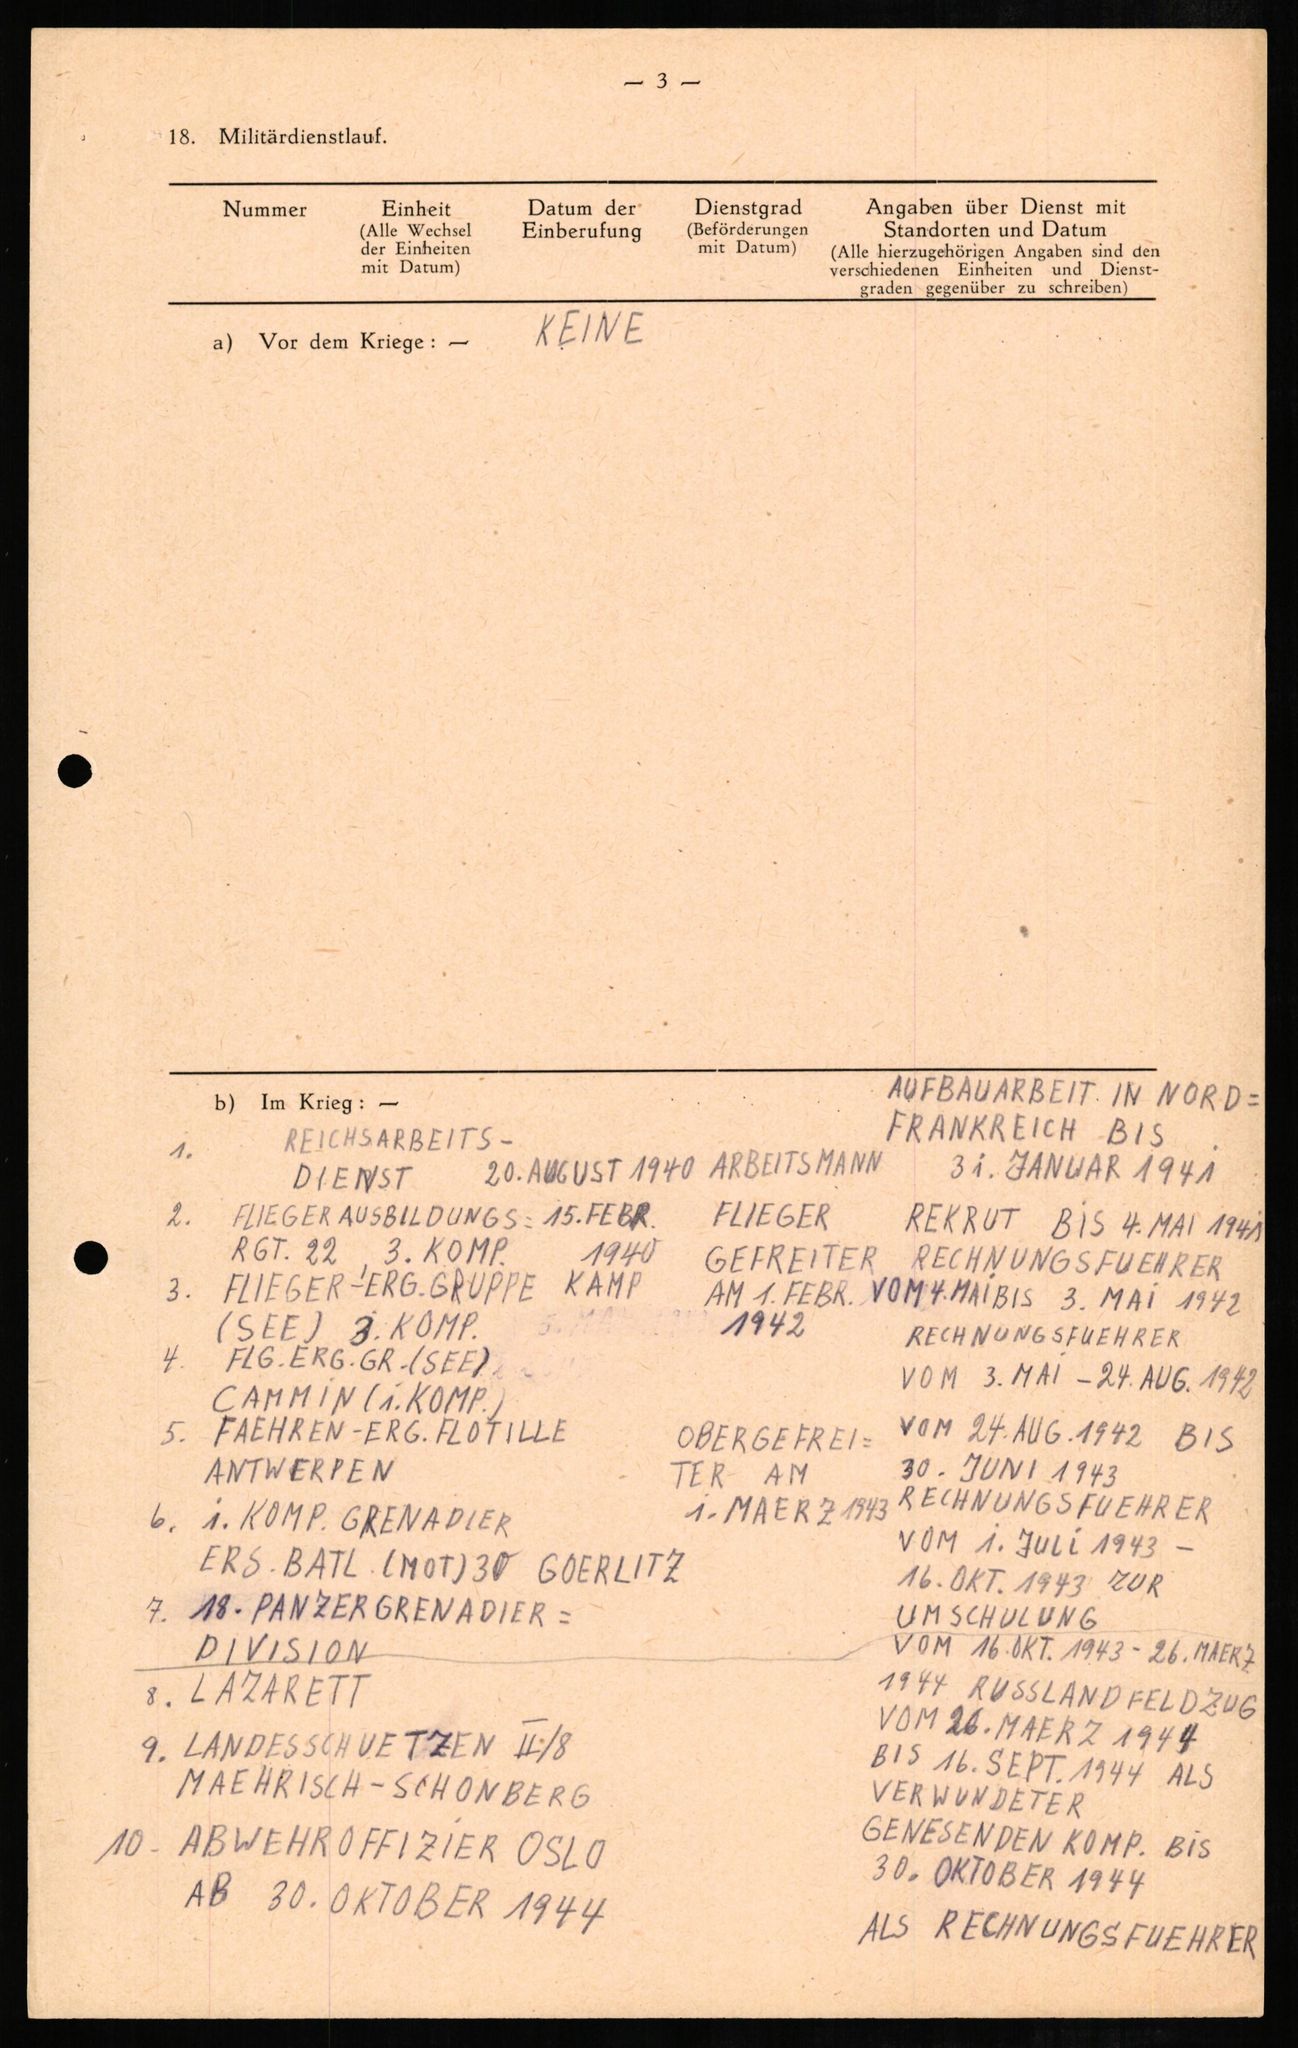 — 3 —
18. Militärdienstlauf.
Nummer
Einheit
(Alle Wechsel
der Einheiten
mit Datum)
Datum der
Einberufung
Dienstgrad
(Beförderungen
mit Datum)
Angaben über Dienst mit
Standorten und Datum
(Alle hierzugehörigen Angaben sind den
verschiedenen Einheiten und Dienst-
graden gegenüber zu schreiben)
a) Vor dem Kriege: — KEINE
b) Im Krieg: —
1. REICHSARBEITS-
DIENST 20. AUGUST 1940 ARBEITSMANN
AUFBAUARBEIT IN NORD=
FRANKREICH BIS
31. JANUAR 1941
2. FLIEGERAUSBILDUNGS= 15. FEBR. FLIEGER REKRUT BIS 4. MAI 1941
RGT. 22, 3. KOMP. 1940 GEFREITER RECHNUNGSFUEHRER
3. FLIEGER-ERG.GRUPPE KAMP AM 1. FEBR. VOM 4. MAI BIS 3. MAI 1942
(SEE) 3. KOMP. 1942 RECHNUNGSFUEHRER
4. FLG. ERG. GR. (SEE)
CAMMIN (1. KOMP.)
VOM 3. MAI - 24. AUG. 1942
5. FAEHREN-ERG. FLOTILLE
ANTWERPEN
OBERGEFREI=
TER AM
1. MAERZ 1943
VOM 24. AUG. 1942 BIS
30. JUNI 1943
RECHNUNGSFUEHRER
6. 1. KOMP. GRENADIER
ERS. BATL. (MOT) 30 GOERLITZ
VOM 1. JULI 1943 -
16. OKT. 1943 ZUR
UMSCHULUNG
7. 18. PANZERGRENADIER=
DIVISION
VOM 16. OKT. 1943 - 26. MAERZ
1944 RUSSLANDFELDZUG
8. LAZARETT
VOM 26. MAERZ 1944
BIS 16. SEPT. 1944 ALS
VERWUNDETER
9. LANDESSCHUETZEN II/8
MAEHRISCH-SCHONBERG
GENESENDEN KOMP. BIS
30. OKTOBER 1944
10. ABWEHROFFIZIER OSLO
AB 30. OKTOBER 1944
ALS RECHNUNGSFUEHRER